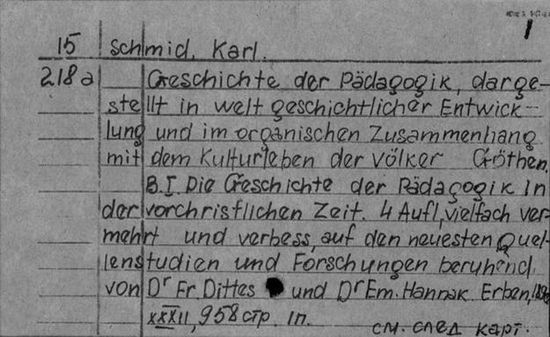 1
15 Schmid, Karl.
218а Geschichte der Pädagogik, darge-
stellt in weltgeschichtlicher Entwick-
lung und im organischen Zusammenhang
mit dem Kulturleben der Völker Cöthen.
B.I. Die Geschichte der Pädagogik in
der vorchristlichen Zeit. 4 Aufl, vielfach ver-
mehrt und verbess, auf den neuesten Quel-
lenstudien und Forschungen beruhend
von Dr Fr. Dittes und Dr Em. Hannak Erben,
XXXII, 958 стр. 1п.
см. след карт.